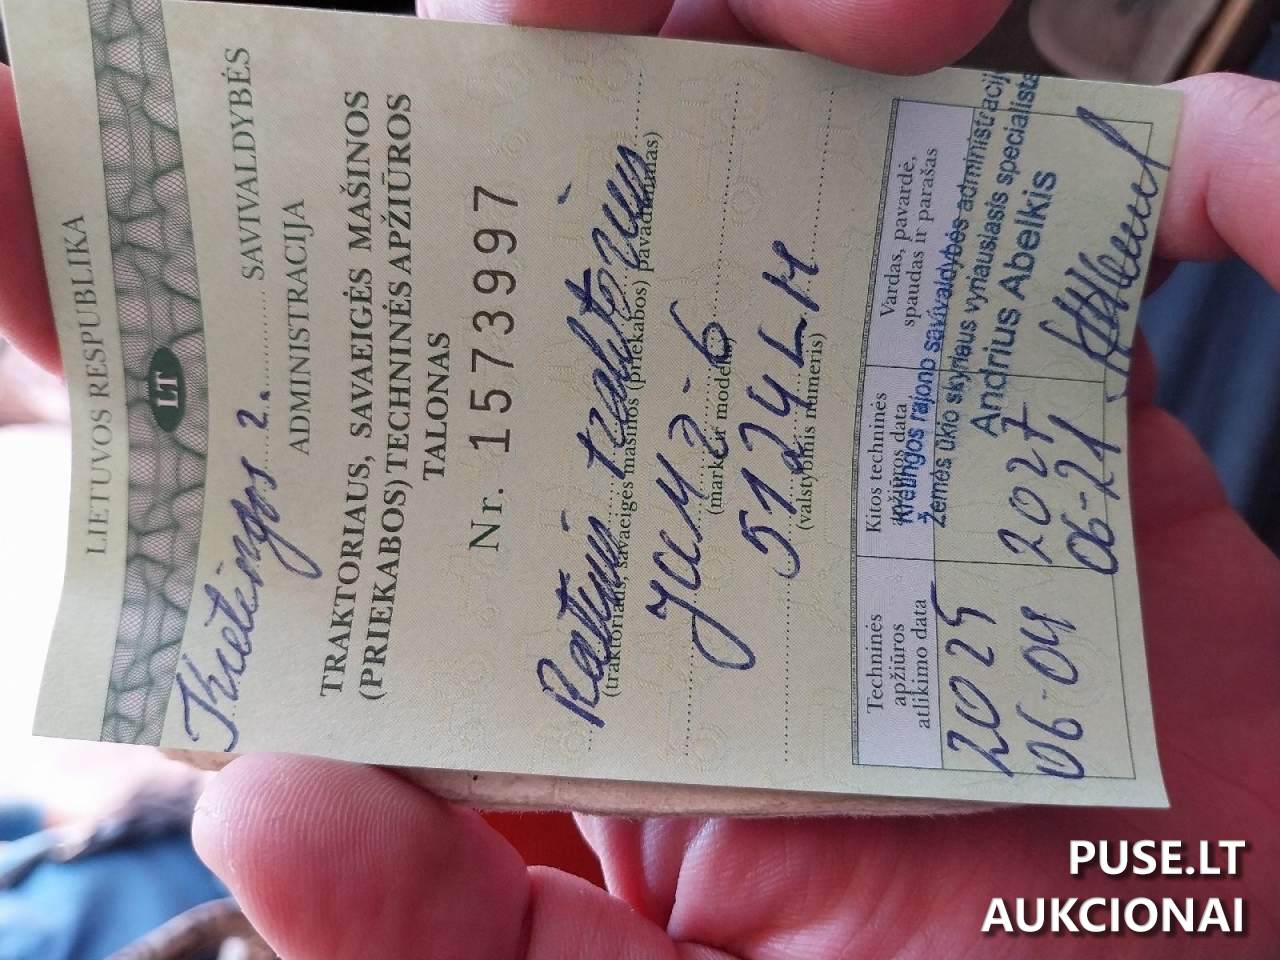 LIETUVOS RESPUBLIKA
LT
Kretingos r. SAVIVALDYBĖS
ADMINISTRACIJA
TRAKTORIAUS, SAVAEIGĖS MAŠINOS
(PRIEKABOS) TECHNINĖS APŽIŪROS
TALONAS
Nr. 1573997
Ratinis traktorius
(traktoriaus, savaeigės mašinos (priekabos) pavadinimas)
JUMZ-6
(markė ir modelis)
5124LH
(valstybinis numeris)
Techninės apžiūros atlikimo data
Kitos techninės apžiūros data
Vardas, pavardė, spaudas ir parašas
Kretingos rajono savivaldybės administracij
Žemės ūkio skyriaus vyriausiasis specialista
Andrius Abelkis
2025 2027
06-04 06-21
PUSE.LT
AUKCIONAI